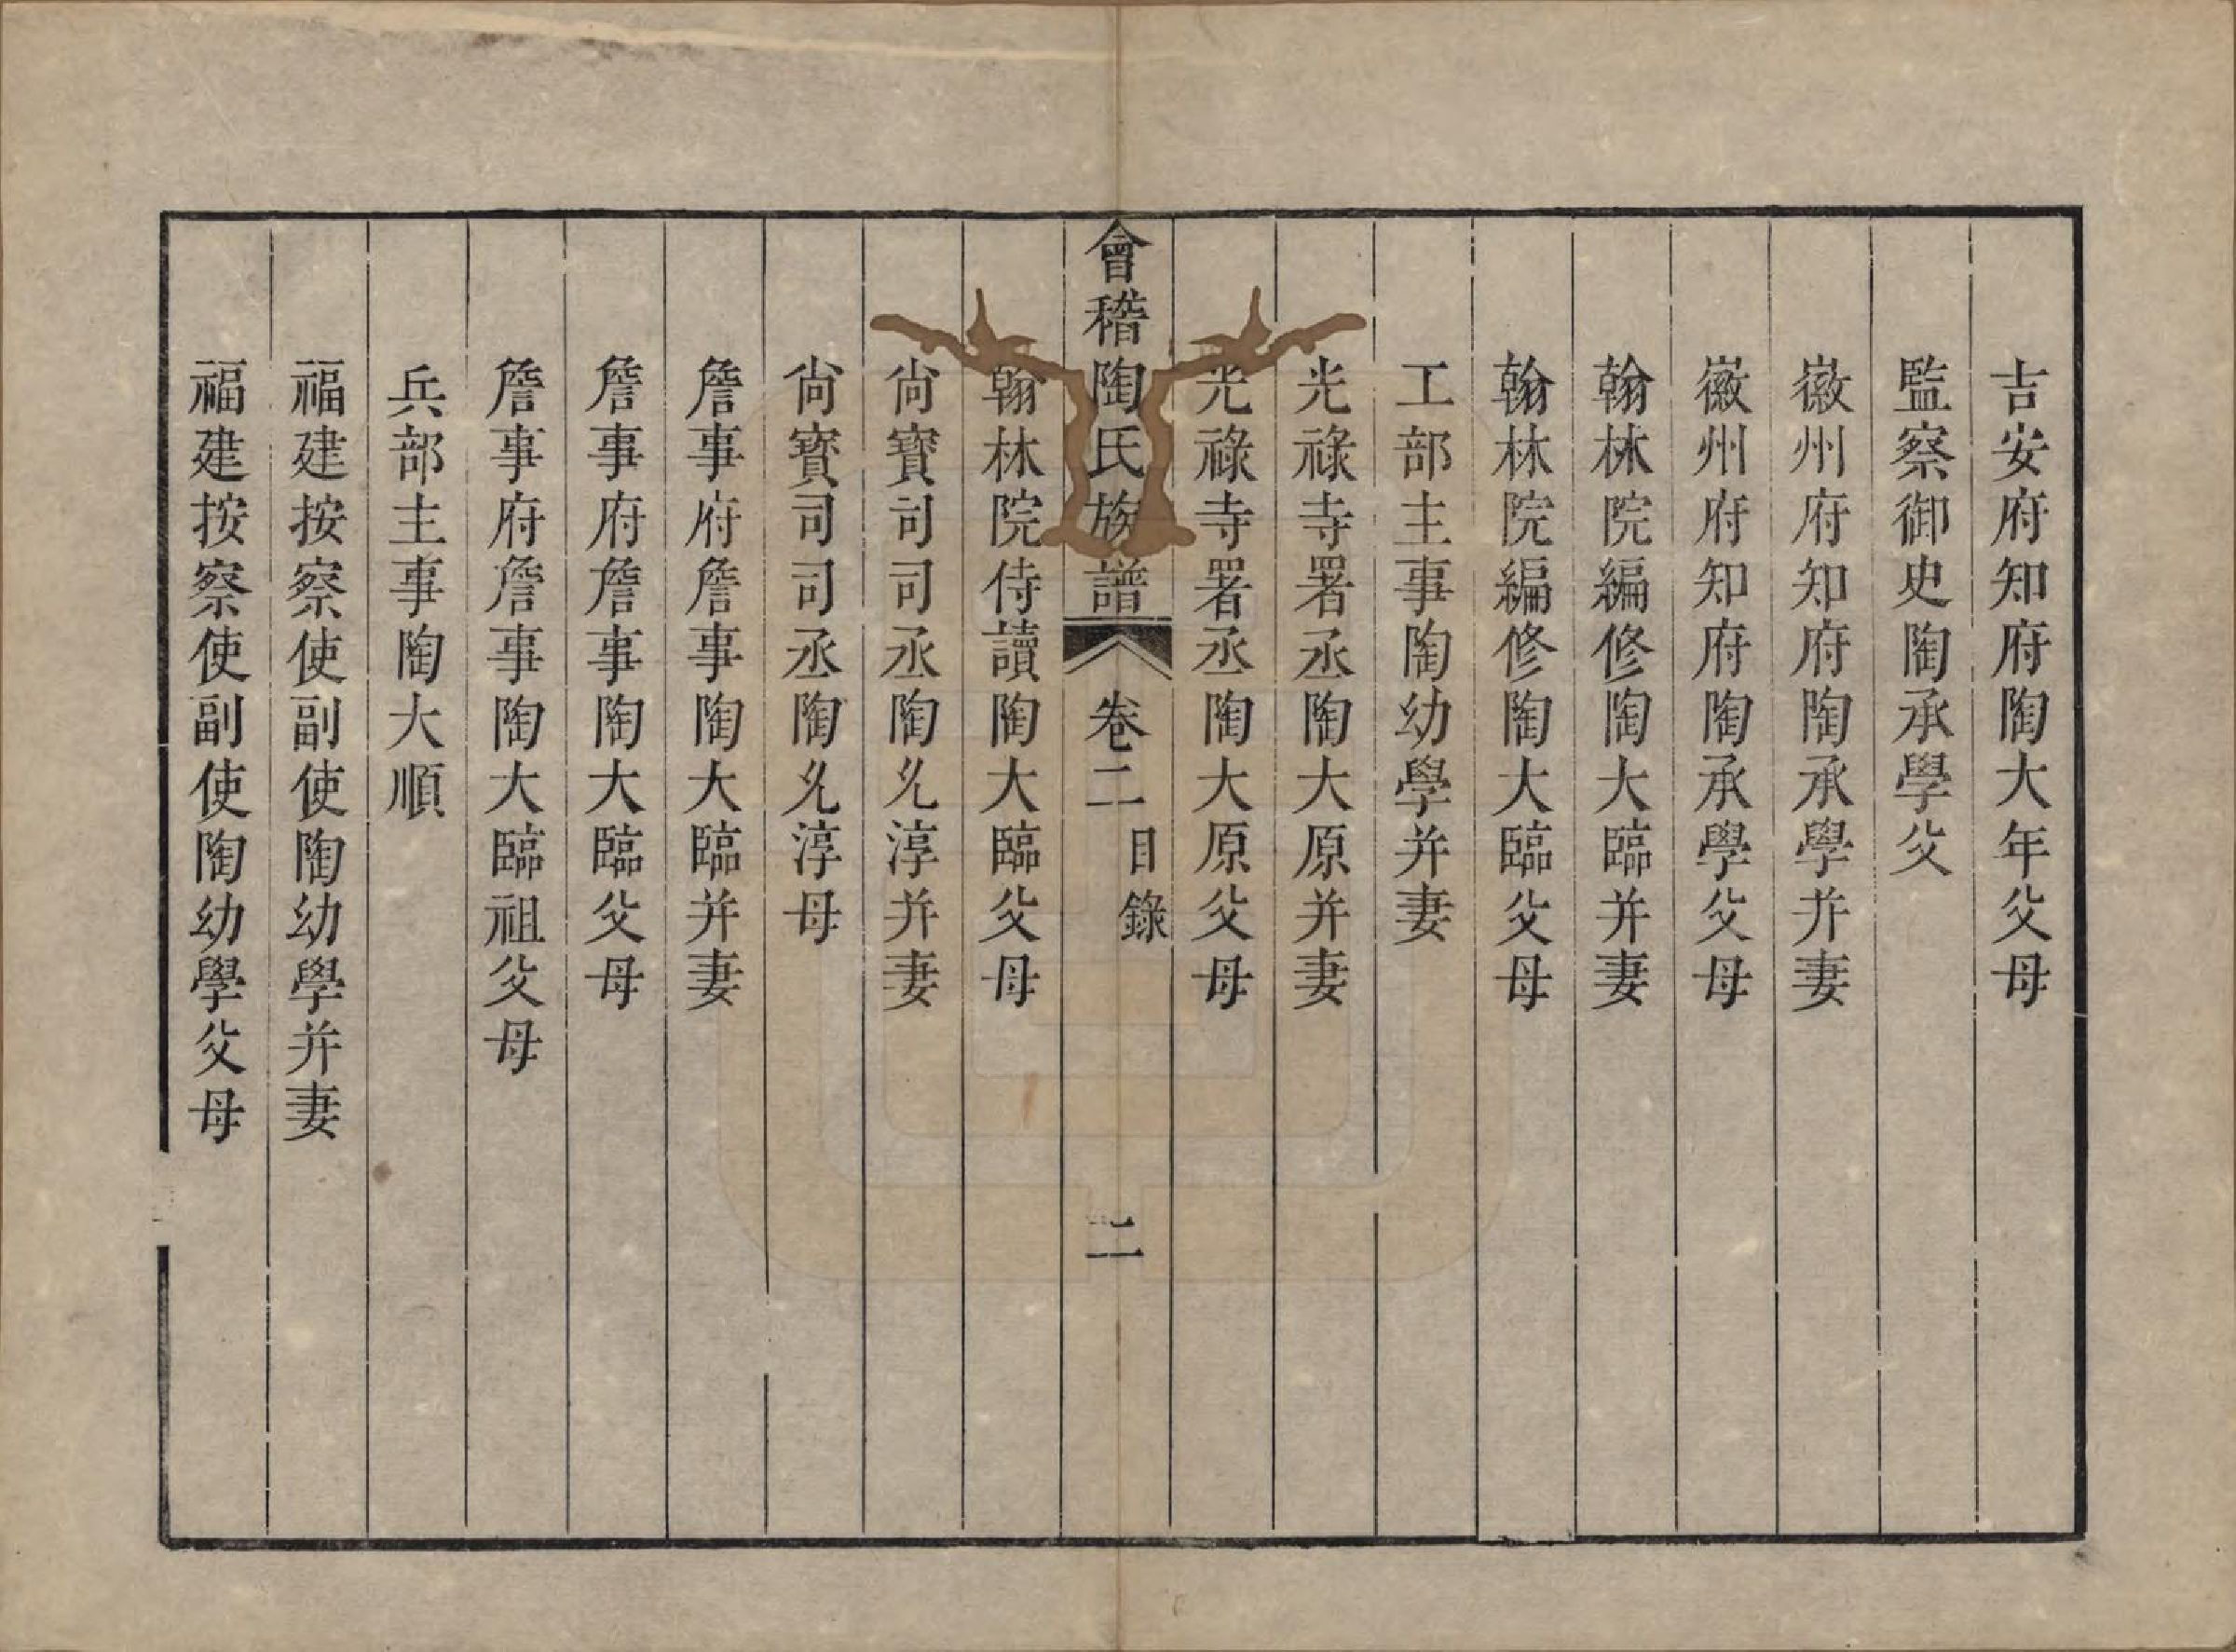 吉安府知府陶大年父母
監察御史陶承學父
徽州府知府陶承學并妻
徽州府知府陶承學父母
翰林院編修陶大臨并妻
翰林院編修陶大臨父母
工部主事陶幼學并妻
光祿寺署丞陶大原并妻
光祿寺署丞陶大原父母
會稽陶氏族譜 卷二 目錄 二
翰林院侍讀陶大臨父母
尚寳司司丞陶允淳并妻
尚寳司司丞陶允淳母
詹事府詹事陶大臨并妻
詹事府詹事陶大臨父母
詹事府詹事陶大臨祖父母
兵部主事陶大順
福建按察使副使陶幼學并妻
福建按察使副使陶幼學父母